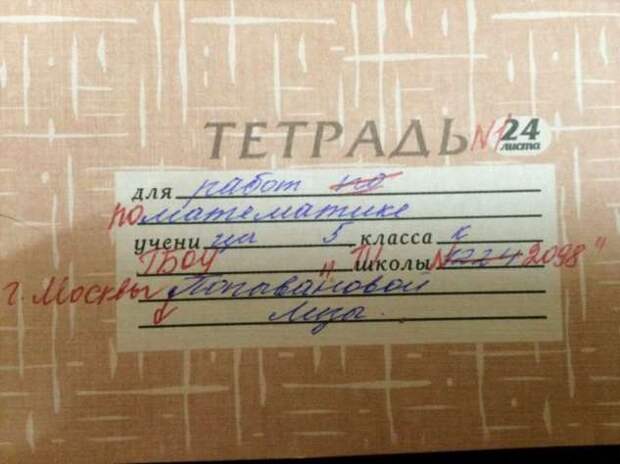 ТЕТРАДЬ №1 24 листа
для работ по
по математике
учени цы 5 класса К
ГБОУ " школы № 2098"
г. Москвы
Лизы.